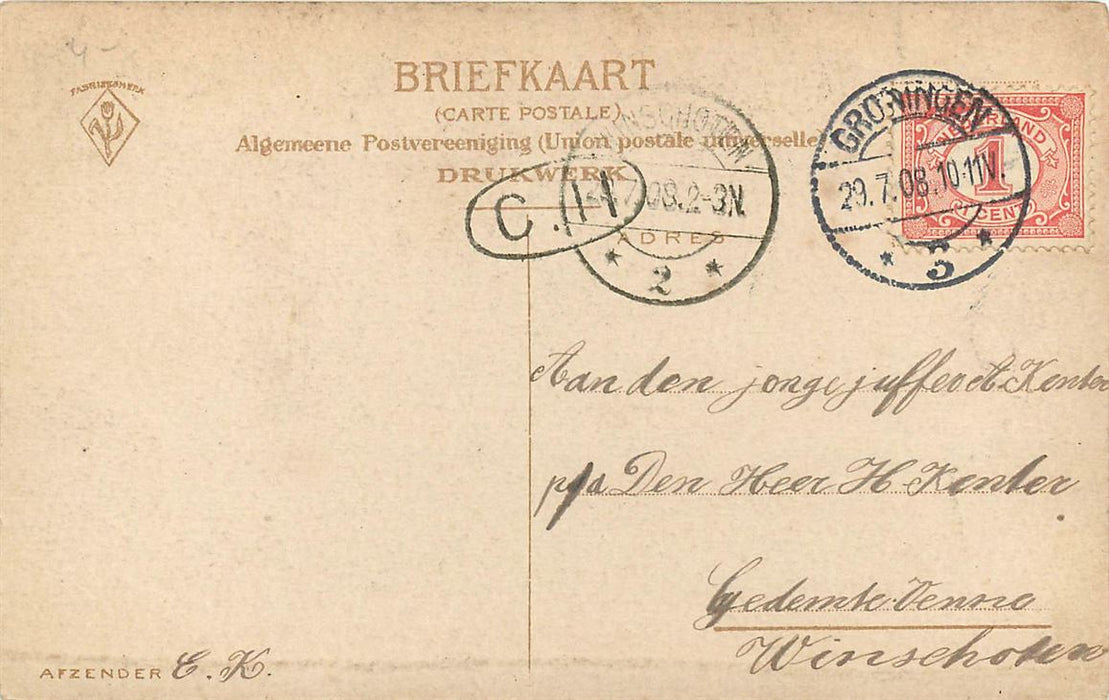 4-
FABRIEKSMERK
BRIEFKAART
(CARTE POSTALE)
Algemeene Postvereeniging (Union postale universelle
DRUKWERK
ADRES
C.H
WINSCHOTEN
7.08.2-3N.
2
GRONINGEN
29.7.08.10-11V.
3
NEDERLAND
1
1 CENT
Aan den jonge juffer A. Kenter
p/a Den Heer H Kenter
Gedemte Venne
Winschoten
AFZENDER E. K.